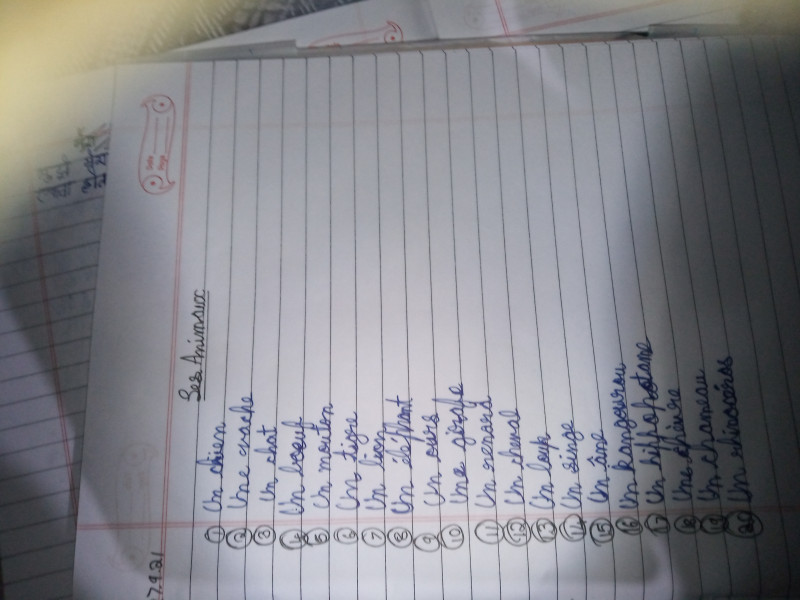 Les Animaux
1 Un chien
2 Une vache
3 Un chat
4 Un boeuf
5 Un mouton
6 Un tigre
7 Un lion
8 Un éléphant
9 Un ours
10 Une girafe
11 Un renard
12 Un cheval
13 Un loup
14 Un singe
15 Un âne
16 Un kangourou
17 Un hippopotame
18 Une chèvre
19 Un chameau
20 Un rhinocéros
7.9.21
Date
Page